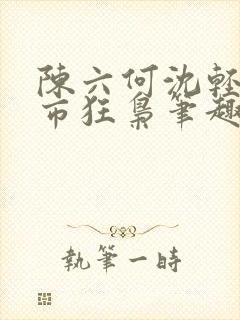 陳六何沈輕
市狂梟筆趣
執筆一時